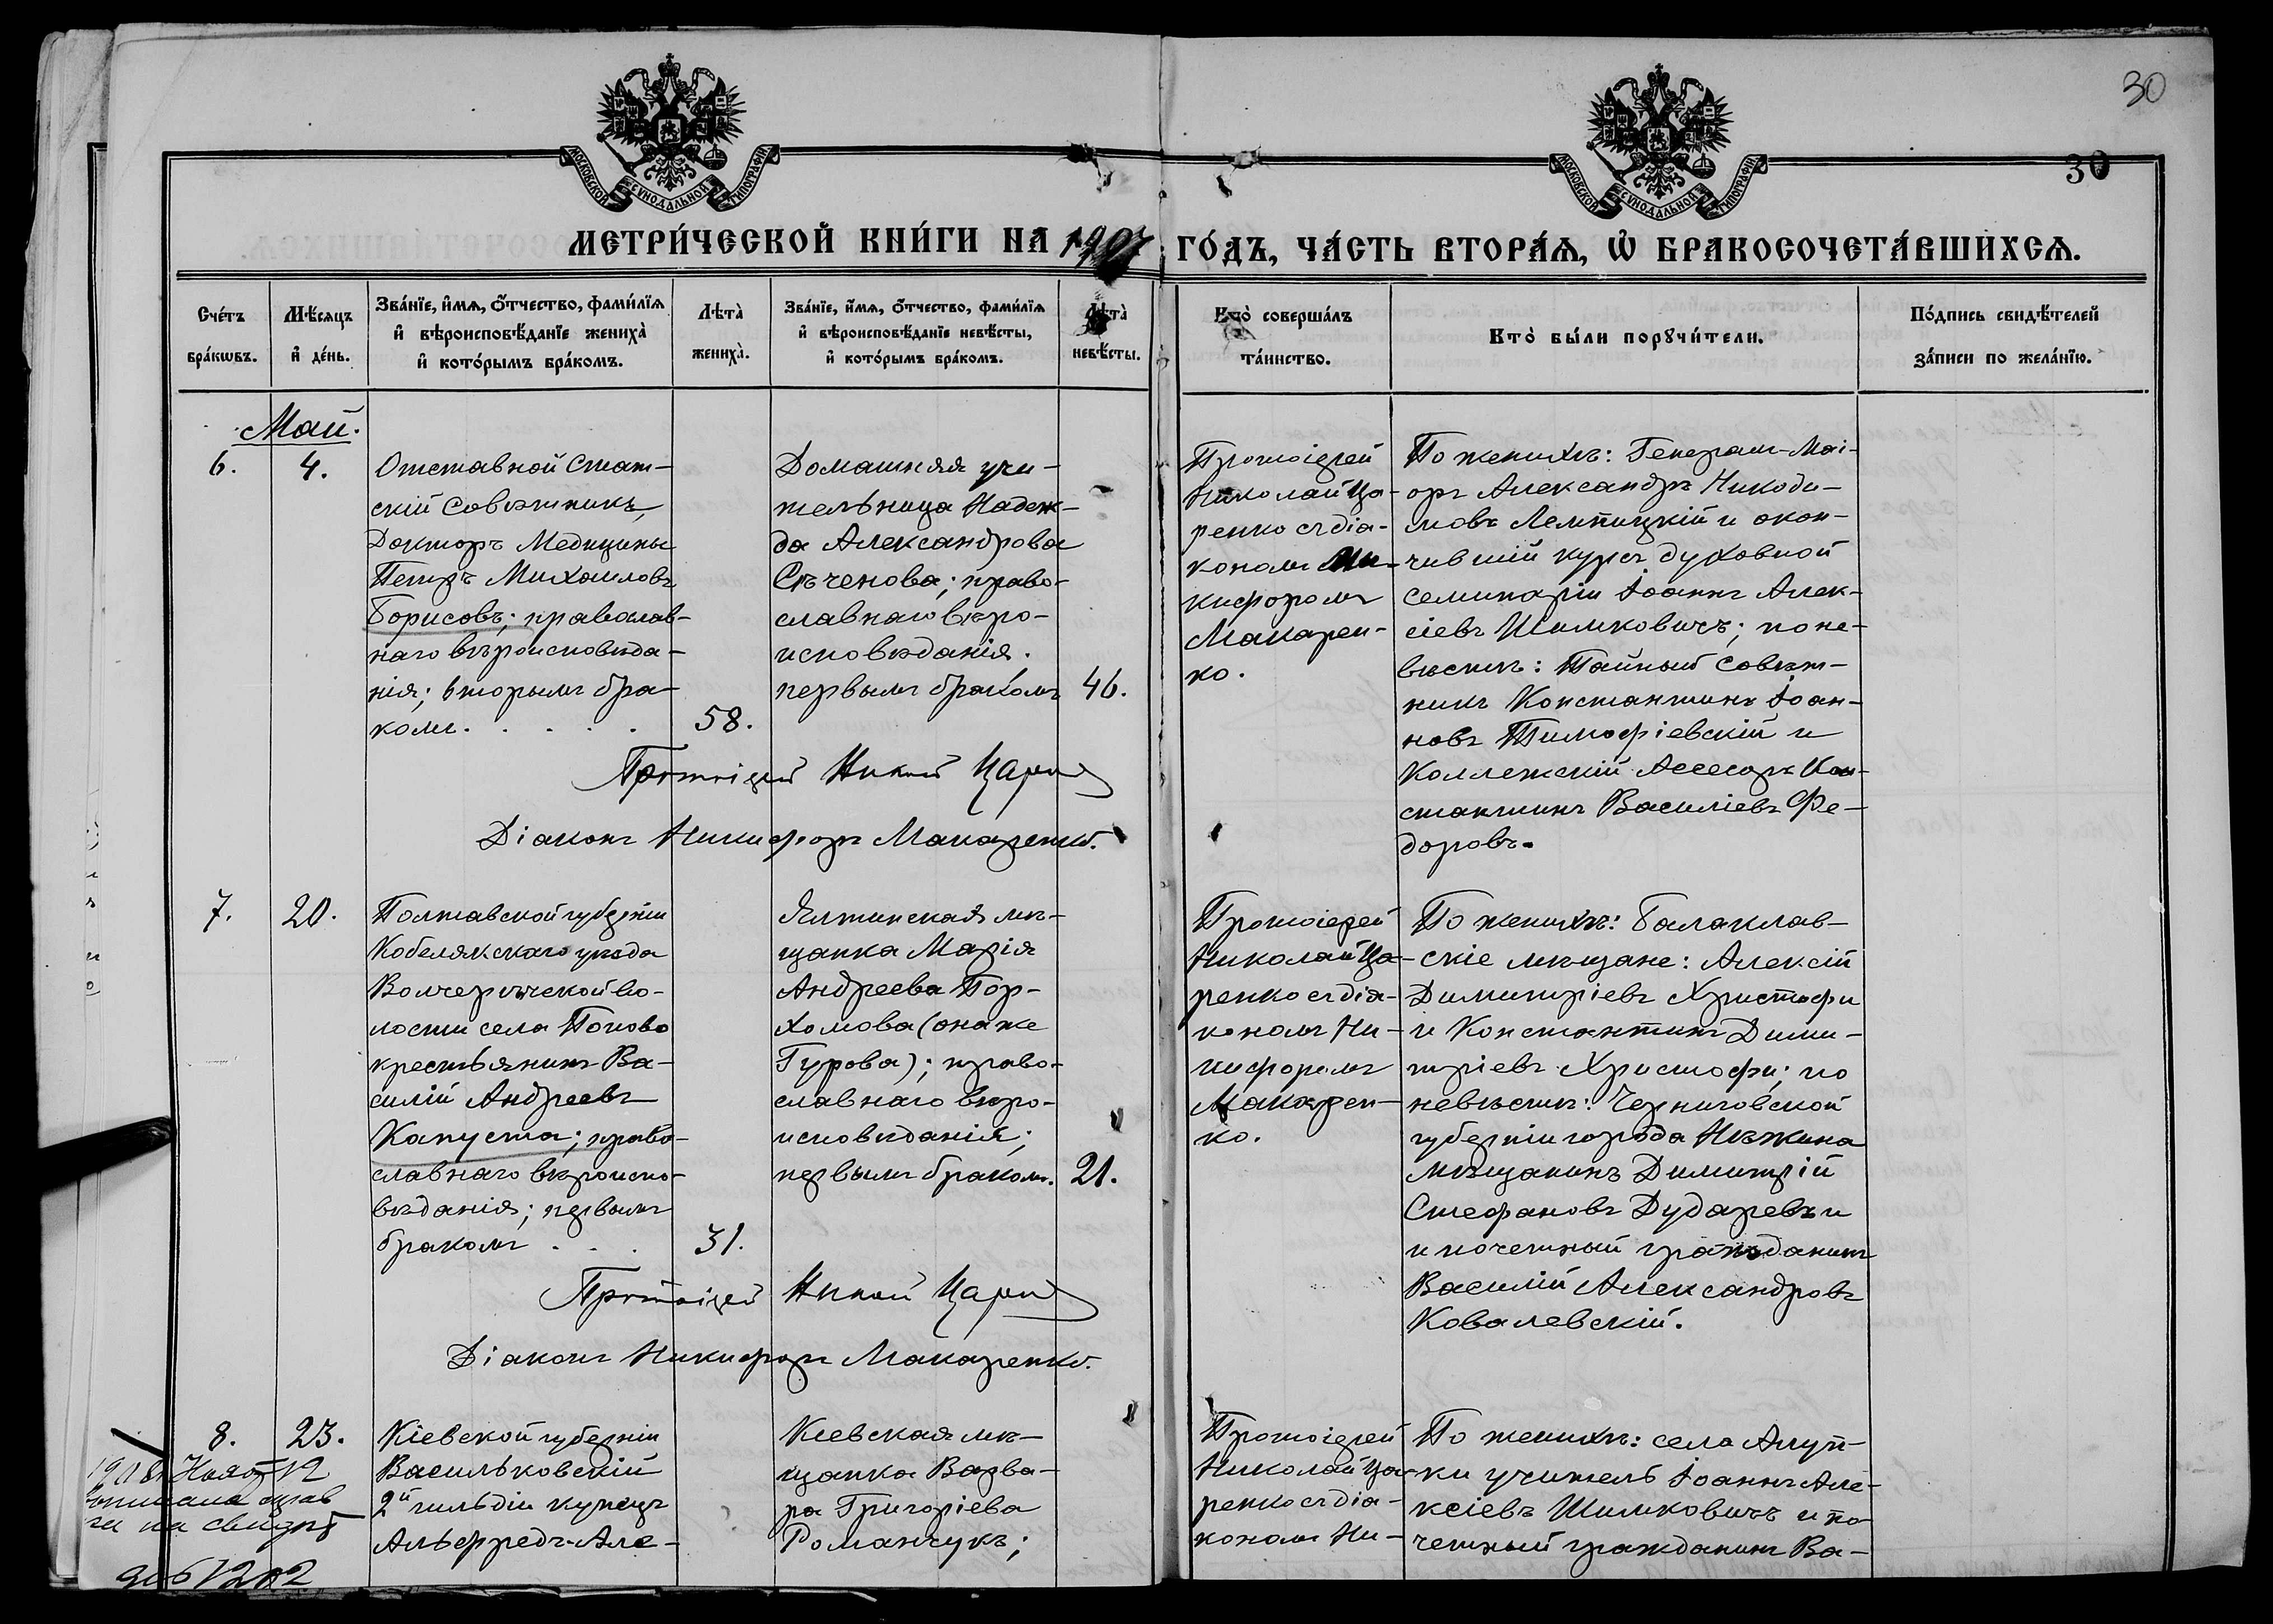 30
МОСКОВСКОЙ СѴНОДАЛЬНОЙ ТИПОГРАФІИ
МОСКОВСКОЙ СѴНОДАЛЬНОЙ ТИПОГРАФІИ
30
МЕТРИ́ЧЕСКОЙ КНИ́ГИ НА 1907 ГО́ДЪ, ЧА́СТЬ ВТОРА́Ѧ, Ѽ БРАКОСОЧЕТА́ВШИХСѦ.
Сче́тъ
бра́кωвъ.
Мѣ́сяцъ
и де́нь.
Зва́нїе, и́мѧ, ѻ҆́тчество, фами́лїѧ
и вѣроисповѣ́данїе жениха̀
и кото́рымъ бра́комъ.
Лѣта̀
жениха̀.
Зва́нїе, и́мѧ, ѻ҆́тчество, фами́лїѧ
и вѣроисповѣ́данїе невѣ́сты,
и кото́рымъ бра́комъ.
Лѣта̀
невѣ́сты.
Кто̀ соверша́лъ
та́инство.
Кто̀ бы́ли порꙋчи́тели.
По́дпись свидѣ́телей
за́писи по жела́нїю.
Май.
6.
4.
Отставной Стат-
скій Совѣтникъ,
Докторъ Медицины
Петръ Михаиловъ
Борисовъ; православ-
наго вѣроисповѣда-
нія; вторымъ бра-
комъ. . . . .
58.
Домашняя учи-
тельница Надеж-
да Александрова
Сѣченова; право-
славнаго вѣро-
исповѣданія.
первымъ бракомъ
46.
Протоіерей
Николай Ца-
ренко съ діа-
кономъ Ни-
кифоромъ
Макарен-
ко.
По женихѣ: Генералъ-Маі-
оръ Александръ Никоди-
мовъ Лемпицкій и окон-
чившій курсъ духовной
семинаріи Іоаннъ Алек-
сіевъ Шимковичъ; по не-
вѣстѣ: Тайный Совѣт-
никъ Константинъ Іоан-
новъ Тимофіевскій и
Коллежскій Ассесоръ Кон-
стантинъ Василіевъ Фе-
доровъ.
Протоіерей Никол Царен
Діаконъ Никифоръ Макаренко.
7.
20.
Полтавской губерніи
Кобелякскаго уѣзда
Волчерѣчской во-
лости села Попово
крестьянинъ Ва-
силій Андреевъ
Капуста; право-
славнаго вѣроиспо-
вѣданія; первымъ
бракомъ . . .
31.
Ялтинская мѣ-
щанка Марія
Андреева Пор-
хомова (она же
Гурова); право-
славнаго вѣро-
исповѣданія;
первымъ бракомъ.
21.
Протоіерей
Николай Ца-
ренко съ діа-
кономъ Ни-
кифоромъ
Макарен-
ко.
По женихѣ: Балаклав-
скіе мѣщане: Алексій
Димитріевъ Христофи
и Константинъ Дими-
тріевъ Христофи; по
невѣстѣ: Черниговской
губерніи города Нѣжина
мѣщанинъ Димитрій
Стефановъ Дударевъ и
и почетный гражданинъ
Василій Александровъ
Ковалевскій.
Протоіерей Никол Царен
Діаконъ Никифоръ Макаренко.
8.
23.
Кіевской губерніи
Васильковскій
2й гильдіи купецъ
Альфредъ-Але-
Кіевская мѣ-
щанка Варва-
ра Григоріева
Романчукъ;
Протоіерей
Николай Ца-
ренко съ діа-
кономъ Ни-
По женихѣ: села Алуп-
ки учитель Іоаннъ Але-
ксіевъ Шимковичъ и по-
четный гражданинъ Ва-
1908 Нояб 12
на свидѣт